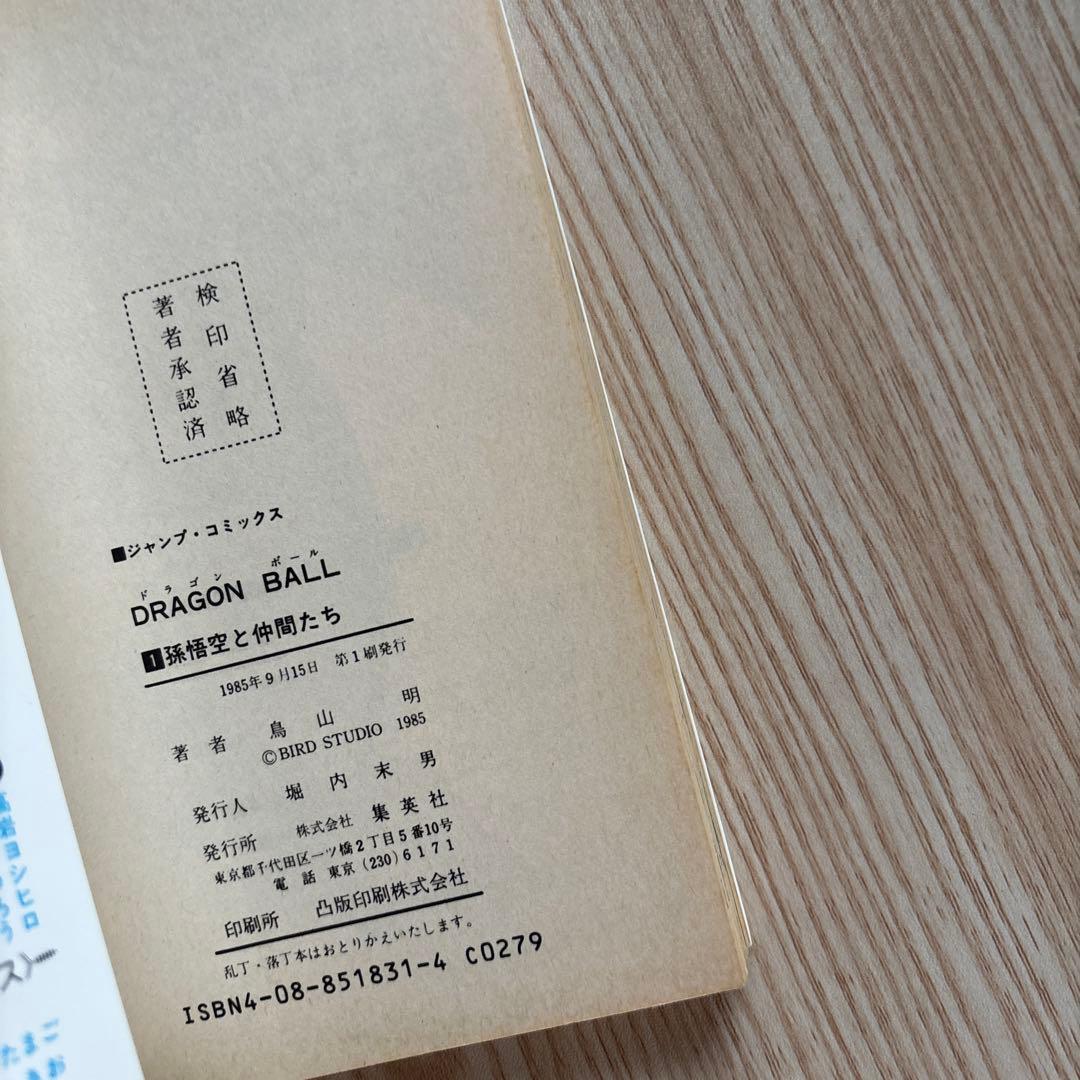 検印省略
著者承認済
■ジャンプ・コミックス
ドラゴン ボール
DRAGON BALL
1 孫悟空と仲間たち
1985年9月15日 第1刷発行
著者 鳥山明
©BIRD STUDIO 1985
発行人 堀内末男
発行所 株式会社 集英社
東京都千代田区一ツ橋2丁目5番10号
電話 東京 (230) 6171
印刷所 凸版印刷株式会社
乱丁・落丁本はおとりかえいたします。
ISBN4-08-851831-4 C0279
ヨシヒロ
ス〉
たまご